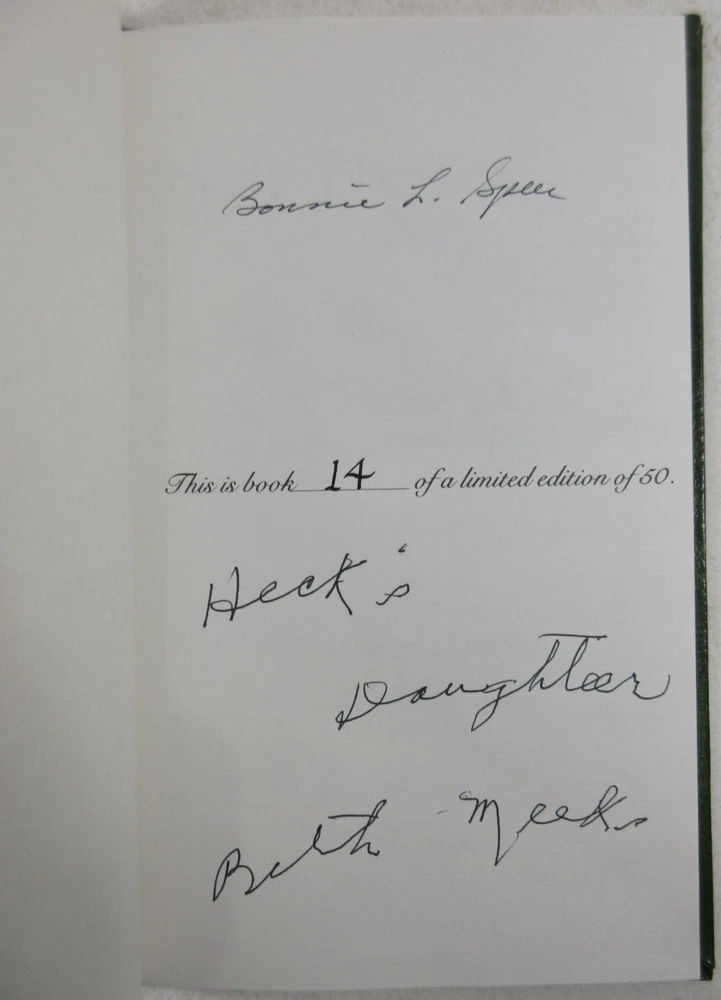 Bonnie L. Speer
This is book 14 of a limited edition of 50.
Heck's
Daughter
Beth Meeks